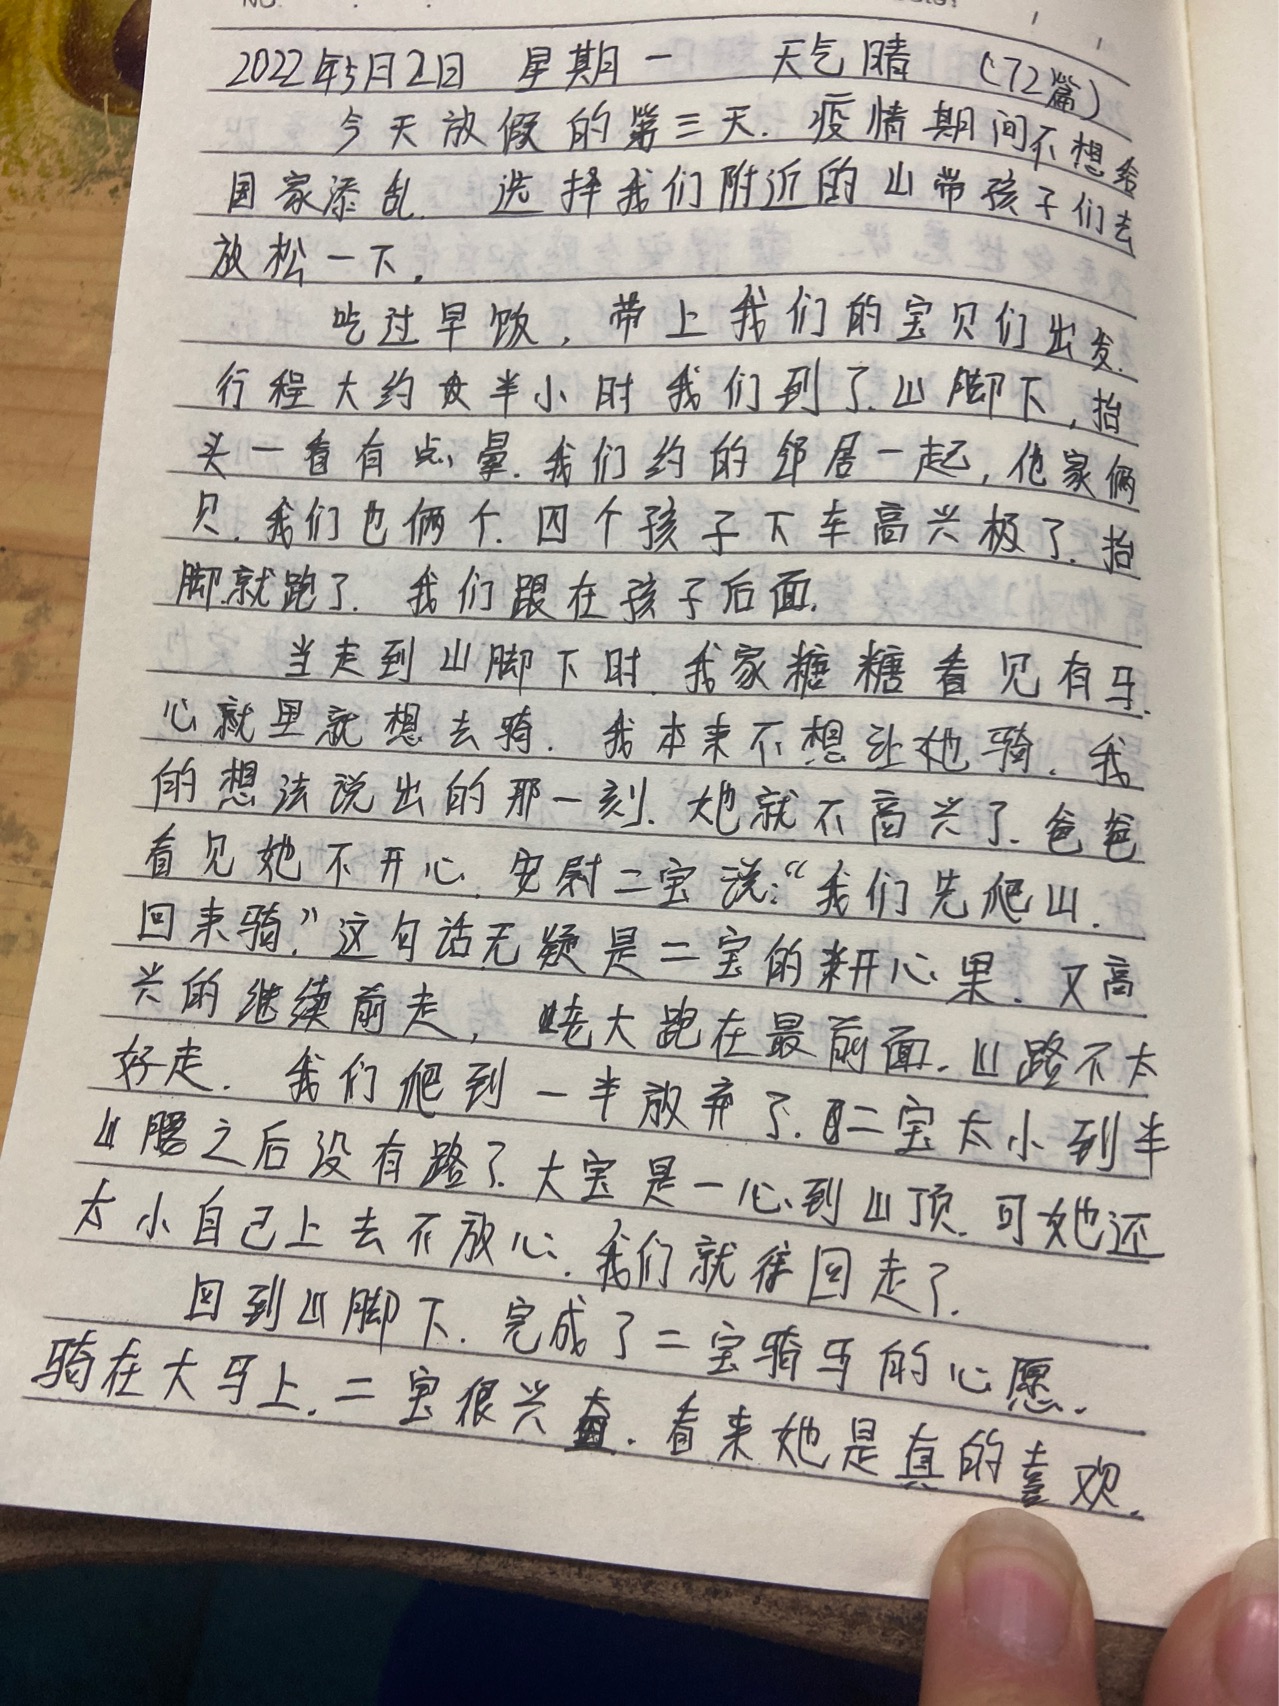 NO.
2022年5月2日 星期一 天气晴 (72篇)
今天放假的第三天.疫情期间不想给
国家添乱.选择我们附近的山带孩子们去
放松一下.
吃过早饭,带上我们的宝贝们出发.
行程大约半小时我们到了.山脚下,抬
头一看有点晕.我们约的邻居一起,他家俩
贝.我们也俩个.四个孩子下车高兴极了.抬
脚就跑了.我们跟在孩子后面.
当走到山脚下时.我家糖糖看见有马.
心就里就想去骑.我本来不想让她骑.我
的想法说出的那一刻.她就不高兴了.爸爸
看见她不开心.安尉二宝说:“我们先爬山.
回来骑.”这句话无疑是二宝的开心果.又高
兴的继续前走,老大跑在最前面.山路不太
好走.我们爬到一半放弃了.二宝太小到半
山腰之后没有路了.大宝是一心到山顶.可她还
太小自己上去不放心.我们就往回走了.
回到山脚下.完成了二宝骑马的心愿.
骑在大马上.二宝很兴奋.看来她是真的喜欢.